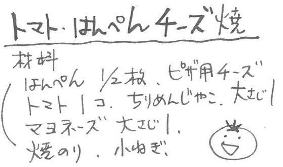 トマト・はんぺんチーズ焼
材料
はんぺん 1/2枚、ピザ用チーズ
トマト1コ、ちりめんじゃこ、大さじ1
マヨネーズ 大さじ1、
焼のり、小ねぎ